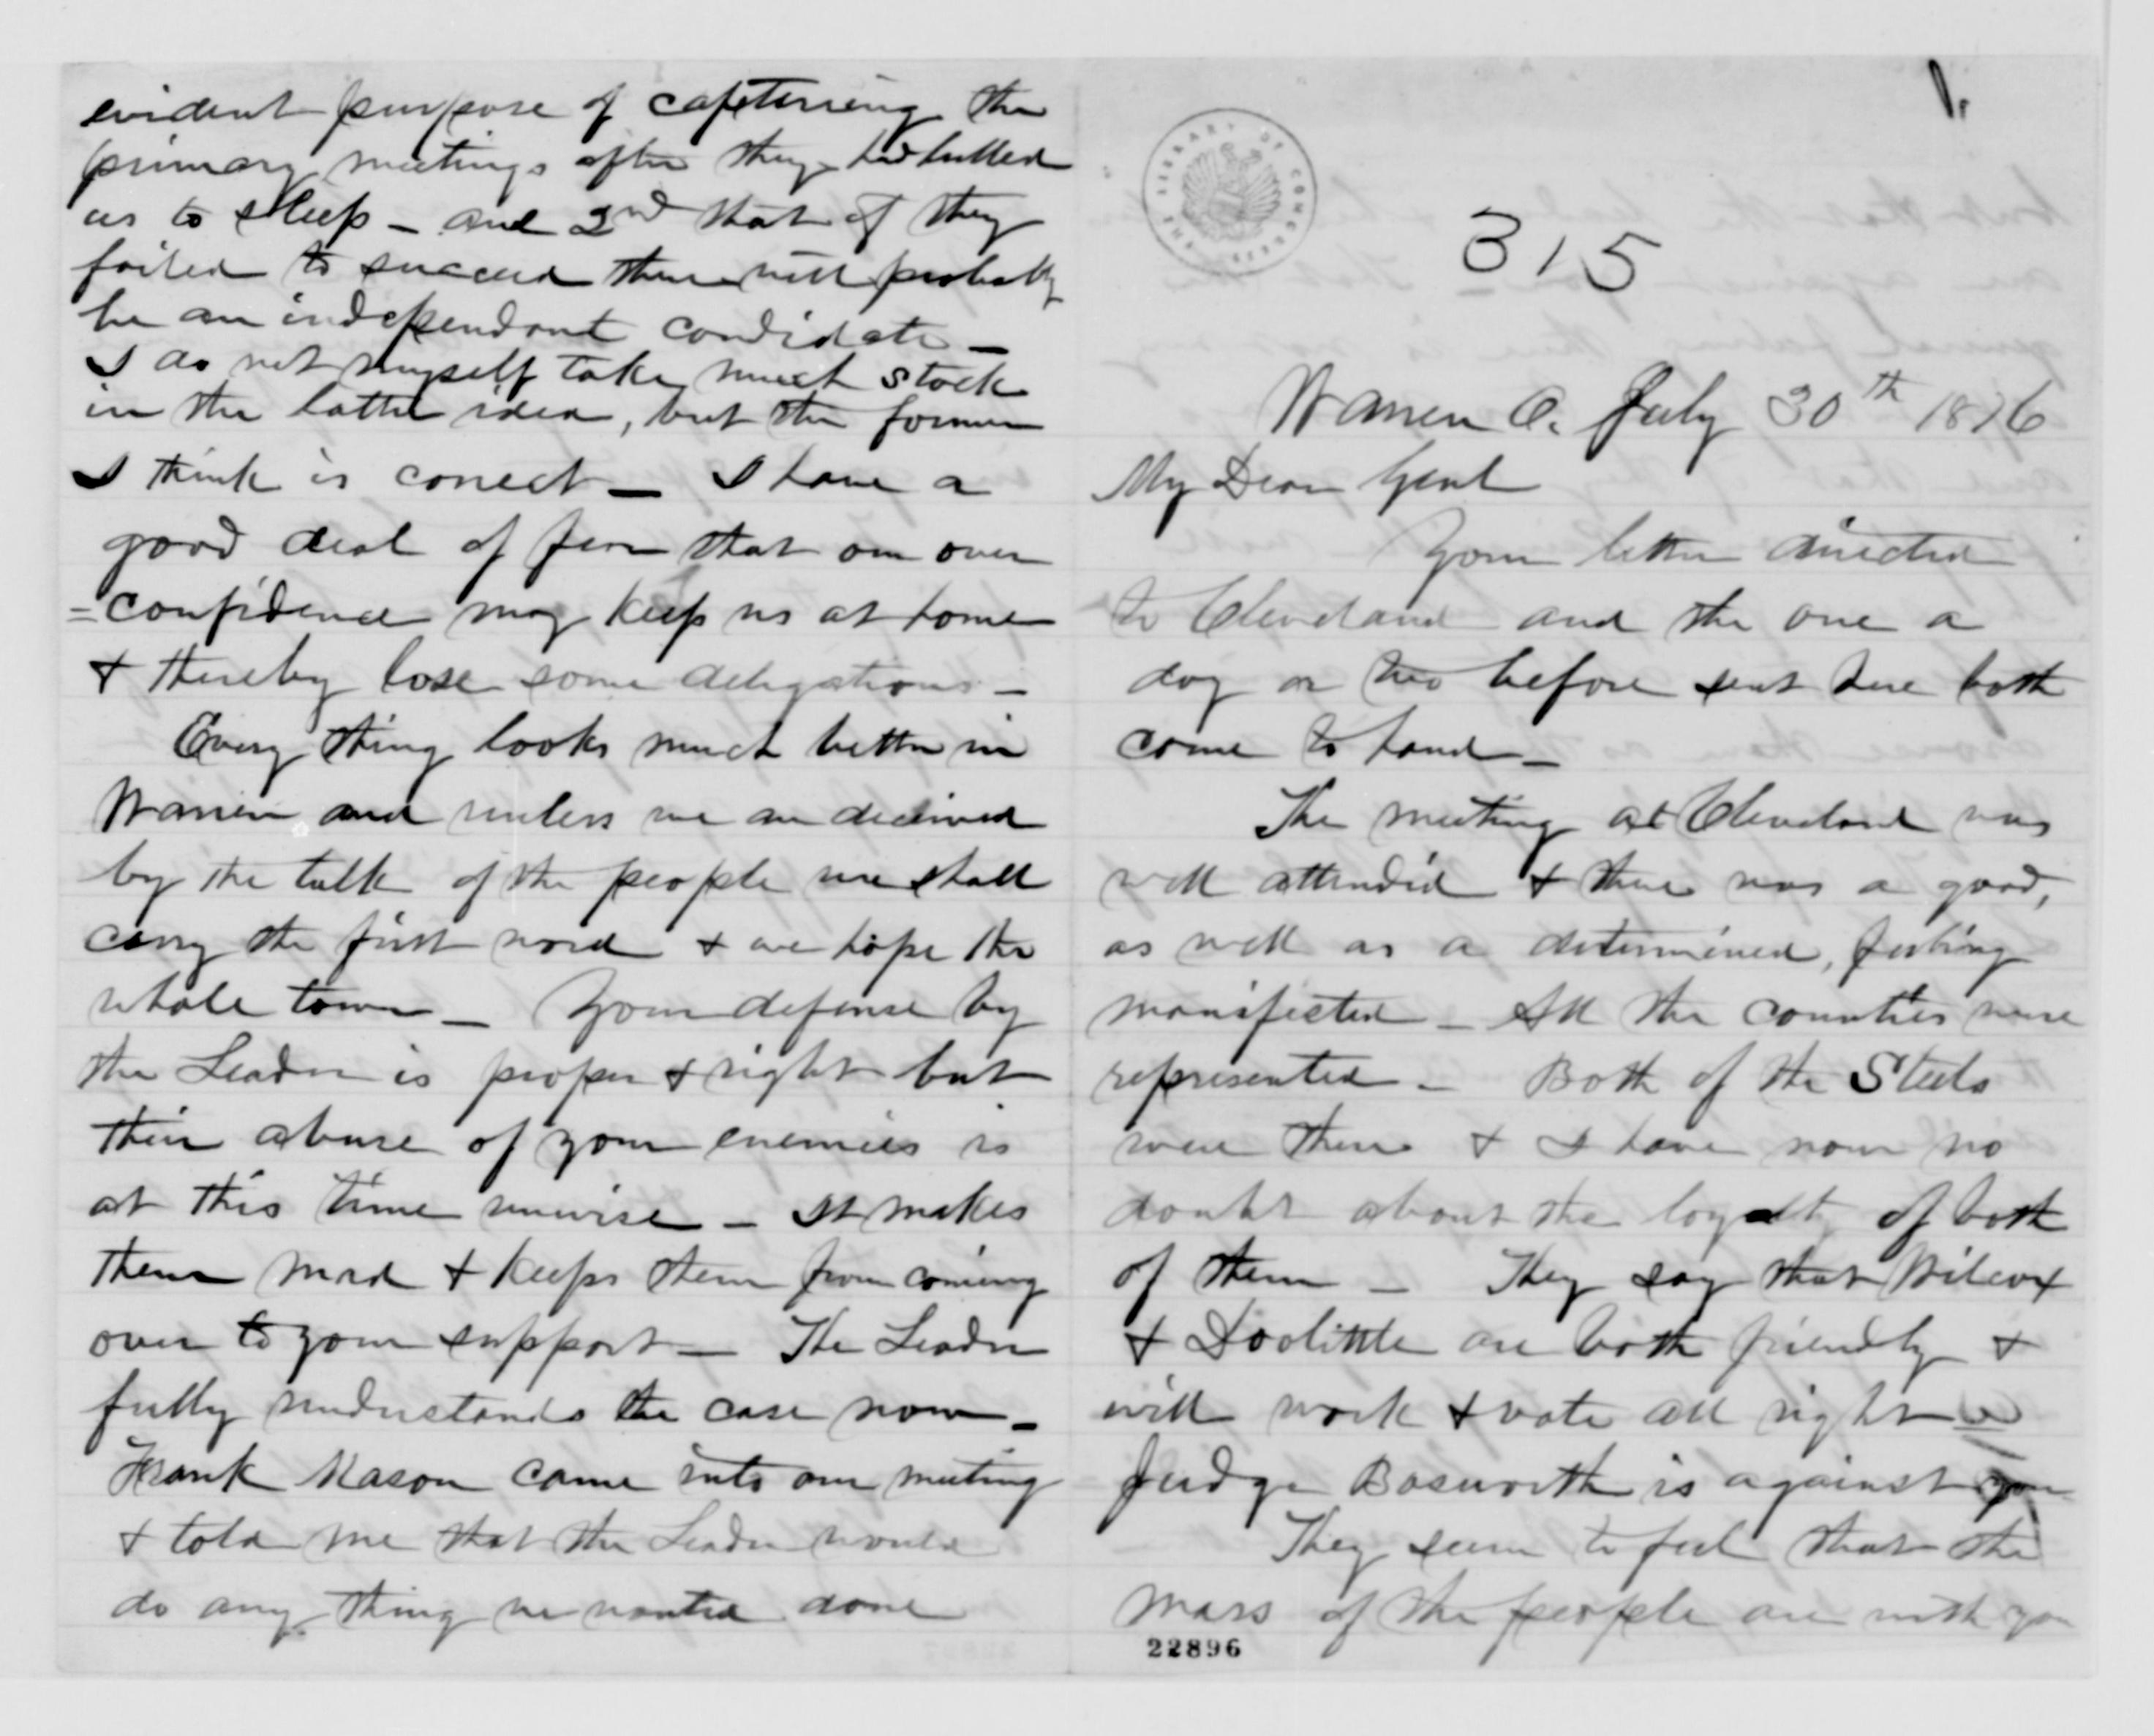 1.
THE LIBRARY OF CONGRESS
315
Warren O. July 30th 1876
My Dear Genl
Your letter directed
to Cleveland and the one a
day or two before sent here both
come to hand –
The meeting at Cleveland was
well attended + there was a good,
as well as a determined, feeling
manifested – All the counties were
represented – Both of the Steels
were there + I have now no
doubt about the loyalty of both
of them – They say that Wilcox
+ Doolittle are both friendly +
will work + vote all right –
Judge Bosworth is against you
They seem to feel that the
mass of the people are with you
22896
evident purpose of captureing the
primary meetings after they had lulled
us to sleep – and 2nd that if they
failed to succeed there will probably
be an independant candidate –
I do not myself take much stock
in the latter idea, but the former
I think is correct – I have a
good deal of fear that our over
=confidence may keep us at home
+ thereby lose some delegations –
Every thing looks much better in
Warren and unless we are deceived
by the talk of the people we shall
carry the first ward + we hope the
whole town – Your defense by
the Leader is proper + right but
their abuse of your enemies is
at this time unwise – It makes
them mad + keeps them from coming
over to your support – The Leader
fully understands the case now –
Frank Mason came into our meeting
+ told me that the Leader would
do any thing we wanted done